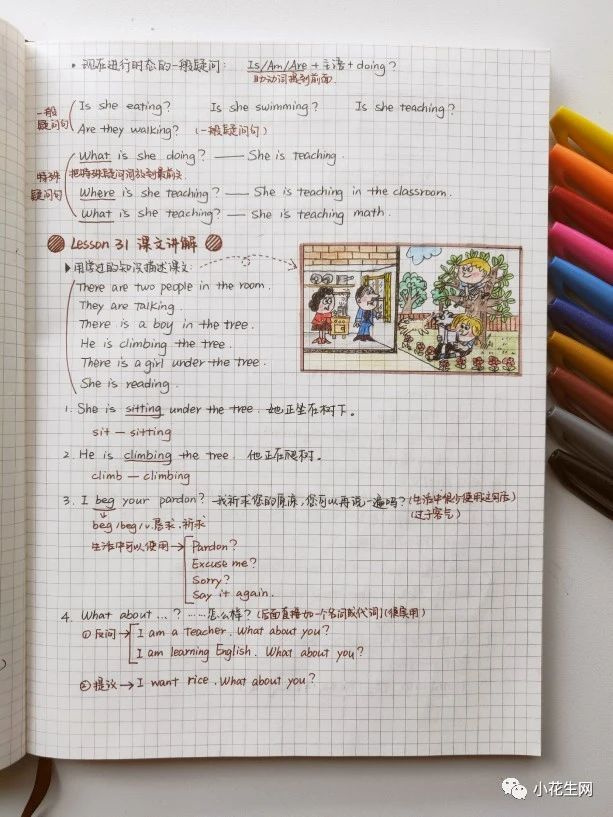 • 现在进行时态的一般疑问: Is/Am/Are + 主语 + doing?
助动词提到前面
一般疑问句
Is she eating? Is she swimming? Is she teaching?
Are they walking? (一般疑问句)
特殊疑问句
What is she doing? —— She is teaching.
把特殊疑问词放到最前头.
Where is she teaching? —— She is teaching in the classroom.
What is she teaching? —— She is teaching math.
Lesson 31 课文讲解
▶用学过的知识描述课文:
There are two people in the room.
They are talking.
There is a boy in the tree.
He is climbing the tree.
There is a girl under the tree.
She is reading.
1. She is sitting under the tree. 她正坐在树下。
sit — sitting
2. He is climbing the tree. 他正在爬树。
climb — climbing
3. I beg your pardon? 我祈求您的原谅,您可以再说一遍吗? (生活中很少使用这句话)
(过于客气)
beg /beg/ v. 恳求,祈求
生活中可以使用 → Pardon?
Excuse me?
Sorry?
Say it again.
4. What about ...? ……怎么样? (后面直接加一个名词或代词) (很实用)
① 反问 → I am a teacher. What about you?
I am learning English. What about you?
② 提议 → I want rice. What about you?
小花生网